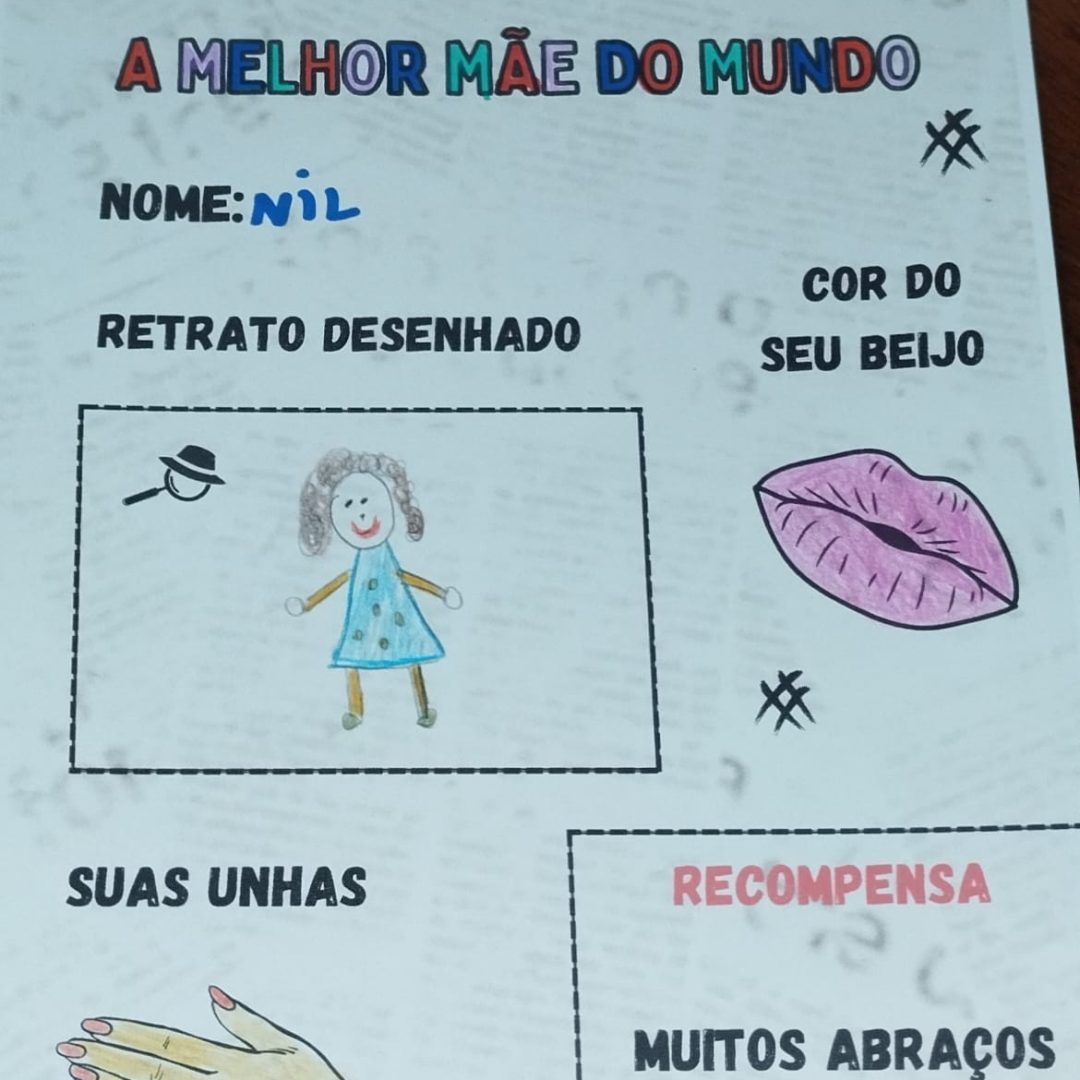 A MELHOR MÃE DO MUNDO
NOME: NiL
RETRATO DESENHADO
COR DO
SEU BEIJO
SUAS UNHAS
RECOMPENSA
MUITOS ABRAÇOS